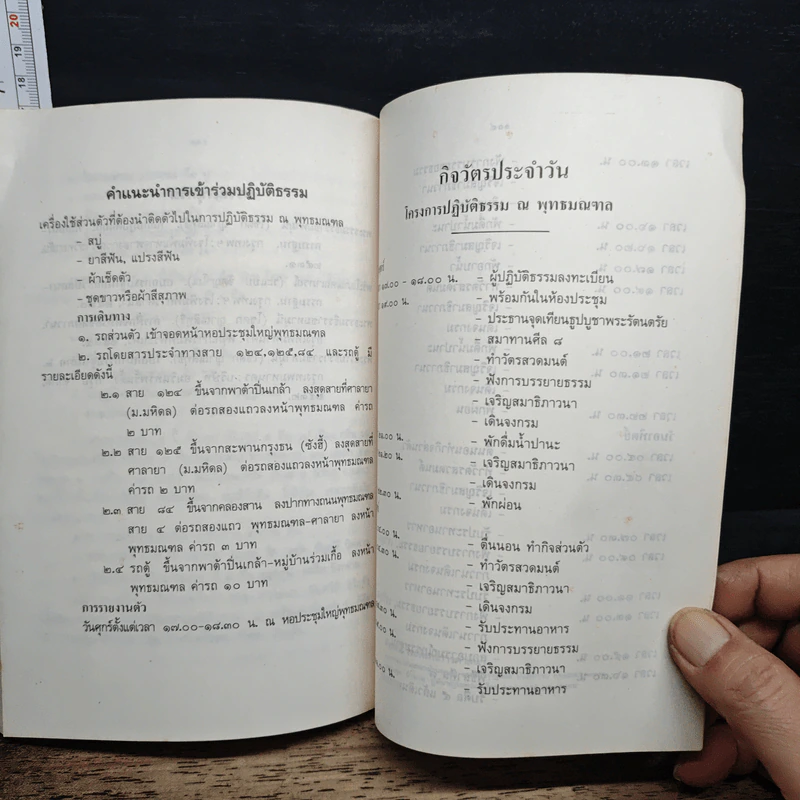 คำแนะนำการเข้าร่วมปฏิบัติธรรม
เครื่องใช้ส่วนตัวที่ต้องนำติดตัวไปในการปฏิบัติธรรม ณ พุทธมณฑล
- สบู่
- ยาสีฟัน, แปรงสีฟัน
- ผ้าเช็ดตัว
- ชุดขาวหรือผ้าสีสุภาพ
การเดินทาง
๑. รถส่วนตัว เข้าจอดหน้าหอประชุมใหญ่พุทธมณฑล
๒. รถโดยสารประจำทางสาย ๑๒๔,๑๒๕,๘๔ และรถตู้ มี
รายละเอียดดังนี้
๒.๑ สาย ๑๒๔ ขึ้นจากพาต้าปิ่นเกล้า ลงสุดสายที่ศาลายา
(ม.มหิดล) ต่อรถสองแถวลงหน้าพุทธมณฑล ค่ารถ
๒ บาท
๒.๒ สาย ๑๒๕ ขึ้นจากสะพานกรุงธน (ซังฮี้) ลงสุดสายที่
ศาลายา (ม.มหิดล) ต่อรถสองแถวลงหน้าพุทธมณฑล
ค่ารถ ๒ บาท
๒.๓ สาย ๘๔ ขึ้นจากคลองสาน ลงปากทางถนนพุทธมณฑล
สาย ๔ ต่อรถสองแถว พุทธมณฑล-ศาลายา ลงหน้า
พุทธมณฑล ค่ารถ ๓ บาท
๒.๔ รถตู้ ขึ้นจากพาต้าปิ่นเกล้า-หมู่บ้านร่วมเกื้อ ลงหน้า
พุทธมณฑล ค่ารถ ๑๐ บาท
การรายงานตัว
วันศุกร์ตั้งแต่เวลา ๑๗.๐๐-๑๘.๓๐ น. ณ หอประชุมใหญ่พุทธมณฑล
กิจวัตรประจำวัน
โครงการปฏิบัติธรรม ณ พุทธมณฑล
๑๗.๐๐ - ๑๘.๐๐ น. - ผู้ปฏิบัติธรรมลงทะเบียน
๑๙.๐๐ น. - พร้อมกันในห้องประชุม
- ประธานจุดเทียนธูปบูชาพระรัตนตรัย
- สมาทานศีล ๘
- ทำวัตรสวดมนต์
- ฟังการบรรยายธรรม
- เจริญสมาธิภาวนา
- เดินจงกรม
- พักดื่มน้ำปานะ
- เจริญสมาธิภาวนา
- เดินจงกรม
- พักผ่อน
- ตื่นนอน ทำกิจส่วนตัว
- ทำวัตรสวดมนต์
- เจริญสมาธิภาวนา
- เดินจงกรม
- รับประทานอาหาร
- ฟังการบรรยายธรรม
- เจริญสมาธิภาวนา
- รับประทานอาหาร
20
19
18